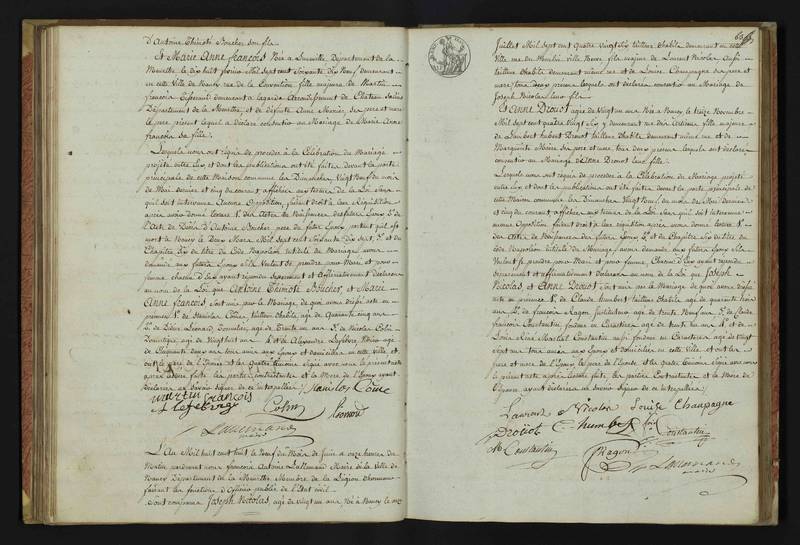 d'Antoine Thimoté Boucher son fils
Et Marie Anne françois Née à Lunéville, Département de la
Meurthe, le dix huit février Mil sept cent soixante dix Neuf demeurant
en cette Ville de Nancy rue de la Convention fille majeure de Martin
françois demeurant à Lagarde Arrondissement de Château Salins
Département de la Meurthe, et de défunte Anne Marie, ses pere et mere
le pere présent lequel a déclaré consentir au Mariage de Marie Anne
françois sa fille.
Lesquels nous ont requis de procéder à la Célébration du Mariage
projetté entre Eux et dont les publications ont été faites devant la porte
principale de cette Maison commune les Dimanches Vingt Neuf du mois
de Mai dernier et cinq du courant affichée aux termes de la Loi sans
qu'il soit intervenu Aucune Opposition, faisant droit à leur Réquisition
après avoir donné lecture 1.° des Actes de Naissances des futurs Epoux 2.°
de l'Acte de Décès d'Antoine Boucher pere du futur Epoux
mort à Nancy le deux Mars Mil sept cent soixante dix sept, 3.° et du
Chapitre six du titre du Code Napoléon intitulé du Mariage avons
demandé aux futurs Epoux s'ils Veulent se prendre pour Mari et pour
femme chacun d'Eux ayant répondu séparément et Affirmativement déclarons
au nom de la Loi que Antoine Thimoté Boucher, et Marie
Anne françois sont unis par le Mariage de quoi avons dressé acte en
présence 1.° de Stanislas Côme, tailleur d'habits, âgé de Quarante cinq ans
2.° de Didier Léonard âgé de Trente un ans 3.° de Nicolas Colin
âgé de Vingt huit ans 4.° et de Alexandre Lefebvre âgé
de Cinquante deux ans tous amis aux Epoux et domiciliés en cette Ville et
ont le pere de l'Epouse et les quatre témoins signé avec nous le présent acte
après lecture faite les parties contractantes et la Mere de l'Epoux ayant
déclaré ne savoir signer de ce interpellées. Stanislas Côme
martin françois
A lefebvre Colin Léonard
Lallemand
maire
L'An Mil huit cent huit le Neuf du Mois de Juin à onze heures du
Matin pardevant nous françois Antoine Lallemand Maire de la Ville de
Nancy Département de la Meurthe Membre de la Légion d'honneur
faisant les fonctions d'Officier public de l'Etat civil
sont comparus Joseph Nicolas, âgé de vingt un ans Né à Nancy le onze
Juillet Mil sept cent Quatre Vingt six tailleur d'habits demeurant en cette
Ville rue du Moulin Ville Neuve fils majeur de Laurent Nicolas Aussi
tailleur d'habits demeurant même rue et de Louise Champagne ses pere et
mere tous deux présens lesquels ont déclaré consentir au Mariage de
Joseph Nicolas leur fils.
Et Anne Drouot âgée de Vingt un ans Née à Nancy le treize Novembre
Mil sept cent quatre Vingt six y demeurant rue des Artisans fille majeure
de Lambert hubert Drouot tailleur d'habits demeurant même rue et de
Marguerite ses pere et mere tous deux présens lesquels ont déclaré
consentir au Mariage d'Anne Drouot leur fille.
Lesquels nous ont requis de procéder à la Célébration du Mariage projetté
entre Eux et dont les publications ont été faites devant la porte principale de
cette Maison commune les Dimanches Vingt Neuf du mois de Mai dernier
et cinq du courant affichée aux termes de la Loi sans qu'il soit intervenu
aucune Opposition faisant droit à leur réquisition après avoir donné lecture 1.°
des Actes de Naissance des futurs Epoux 2.° et du Chapitre Six du titre du
Code Napoléon intitulé du Mariage, avons demandé aux futurs Epoux s'ils
Veulent se prendre pour Mari et pour femme, chacun d'Eux ayant répondu
séparément et affirmativement déclarons au nom de la Loi que Joseph
Nicolas et Anne Drouot sont unis par le Mariage de quoi avons dressé
acte en présence 1.° de Claude humbert tailleur d'habits âgé de quarante trois
ans 2.° de françois Ragon Instituteur âgé de trente Neuf ans 3.° de
françois Constantin, fondeur en Caractères âgé de trente un ans 4.° et de
Louis Martial Constantin aussi fondeur en Caractères âgé de vingt
sept ans tous amis aux Epoux et domiciliés en cette Ville, et ont les
pere et mere de l'Epoux le pere de l'Epouse et les quatre témoins signé avec nous
le présent acte après lecture faite les parties Contractantes et la Mere de
l'Epouse ayant déclaré ne savoir signer de ce interpellées.
Laurent Nicolas Louise Champagne
Drouot C. humbert fois Constantin
M Constantin
Ragon Lallemand
maire